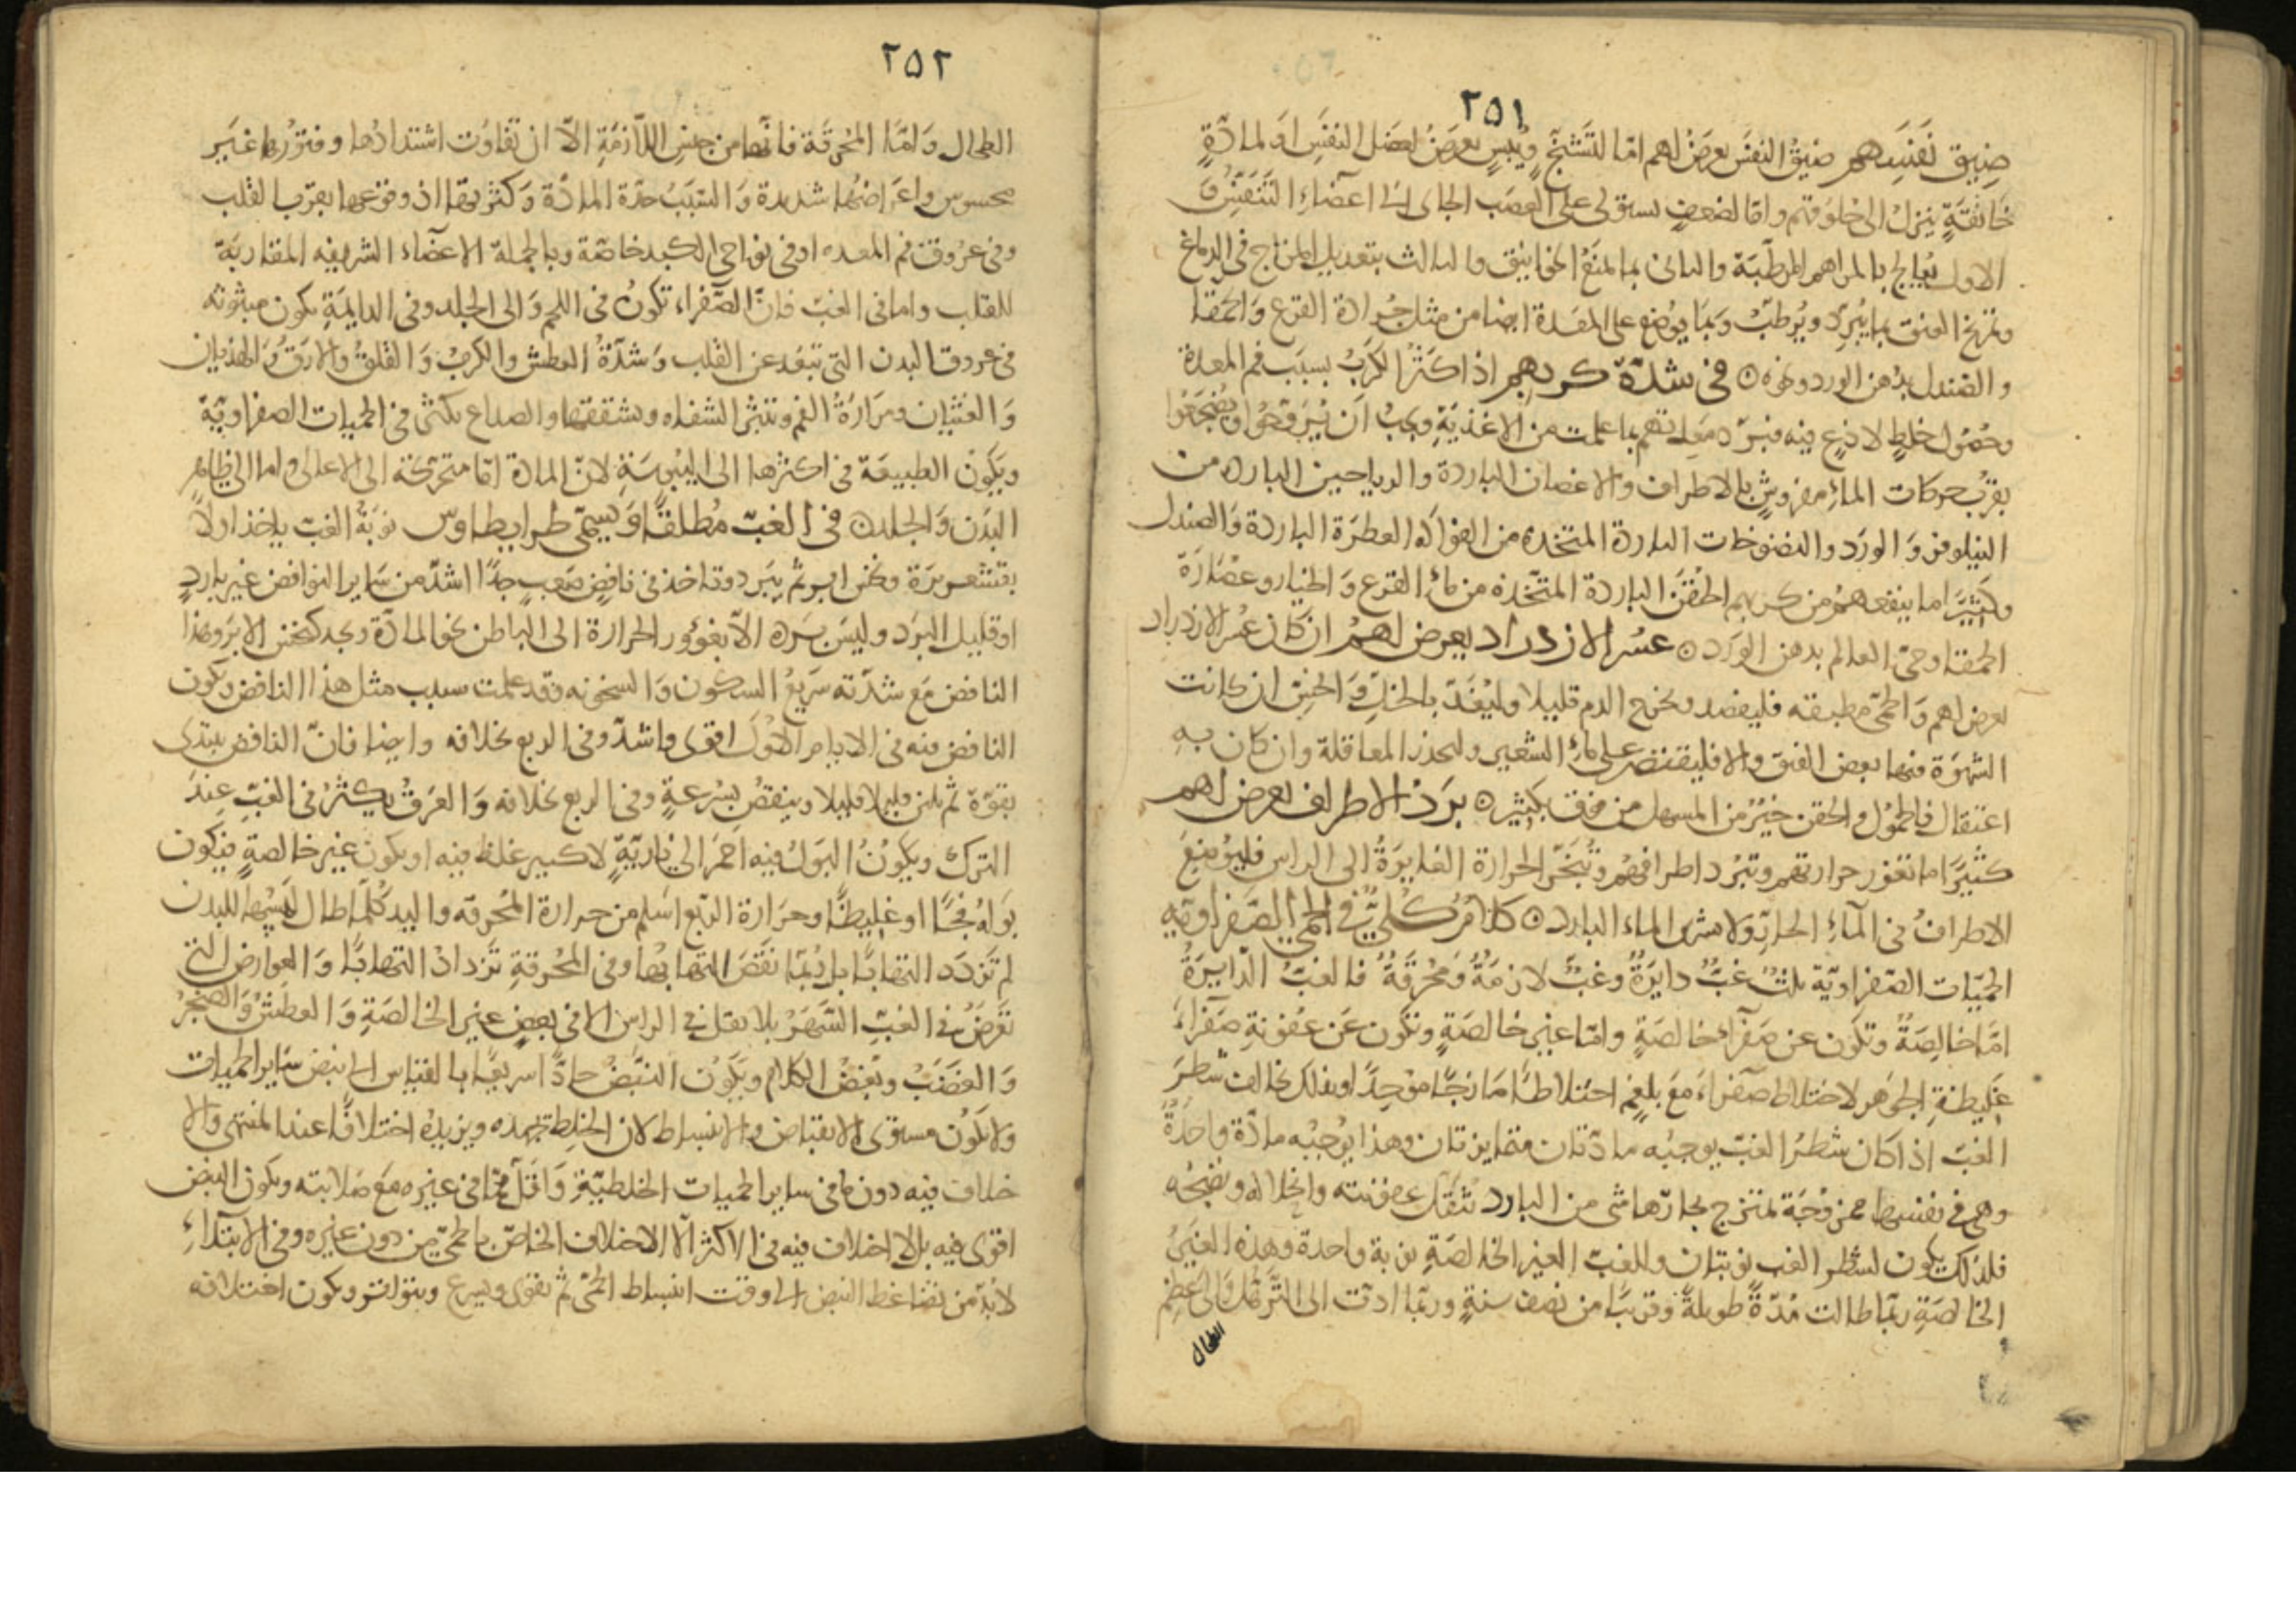 ٢٥١
ضيق نفسهم ضيق النفس يعرض لهم اما لتشنج ويبس يعرض لعضل النفس او لمادة
خانقة ينزل الى حلوقهم واما لضعف يستولى على العصب الجاى الى اعضاء التنفس
الاول يعالج بالمراهم المرطبة والثانى بما يمنع الخوانيق والثالث بتعديل المزاج فى الدماغ
وتمريخ العنق بما يبرد ويرطب وبما يوضع على المعدة ايضا من مثل جرادة القرع والحمقا
والصندل بدهن الورد ونحوه فى شدة كربهم اذا كثر الكرب بسبب فم المعدة
وحصول خلط لاذع فيه فبرد معدتهم بما علمت من الاغذية ويجب ان يروحوا ويضجعوا
بقرب حركات الماء مفروش بالاطراف والاغصان الباردة والرياحين الباردة من
النيلوفر والورد والنضوخات الباردة المتخذة من الفواكه العطرة الباردة والصندل
وكثيرا ما ينفعهم من كربهم الحقن الباردة المتخذة من ماء القرع والخيار وعصارة
الحمقا وحى العالم بدهن الورد عسر الازدراد يعرض لهم ان كان عسر الازدراد
يعرض لهم والحمى مطبقه فليفصد ويخرج الدم قليلا وليغذ بالخل والخبز ان كانت
الشهوة فيها بعض القوة والا فليقتصر على ماء الشعير وليحذر المعاقلة وان كان به
اعتقال فالحمول والحقن خير من المسهل من فوق بكثير برد الاطراف يعرض لهم
كثيرا ما تغور حرارتهم وتبرد اطرافهم وتبخر الحرارة الغايرة الى الراس فليوضع
الاطراف فى الماء الحار ولا يشرب الماء البارد كلام كلى فى الحمى الصفراويه
الحميات الصفراوية ثلث غب دايرة وغب لازمة ومحرقة فالغب الدايرة
اما خالصة وتكون عن صفراء خالصة واما غير خالصة وتكون عن عفونة صفراء
غليظة الجوهر لاختلاط صفراء مع بلغم اختلاطا مازجا موحدا وبذلك يخالف شطر
الغب اذ كان شطر الغب يوجبه مادتان متمايزتان وهذا يوجبه مادة واحدة
وهى فى نفسها ممزوجة تمتزج بحارها شى من البارد تثقل عفونته وانحلاله ونضجه
فلذلك يكون لشطر الغب نوبتان وللغب الغير الخالصة نوبة واحدة وهذه الغير
الخالصة ربما طالت مدة طويلة وقريبا من نصف سنة وربما ادت الى الترهل والى عظم
الطحال
٢٥٢
الطحال واما المحرقة فانها من جنس اللازمة الا ان تفاوت اشتدادها وفتورها غير
محسوس واعراضها شديدة والسبب حدة المادة وكثرتها اذ وقوعها بقرب القلب
وفى عروق فم المعده او فى نواحى الكبد خاصة وبالجملة الاعضاء الشريفه المقاربة
للقلب واما فى الغب فان الصفراء تكون فى اللحم والى الجلد وفى الدايمة يكون مبثوثه
فى عروق البدن التى تبعد عن القلب وشدة العطش والكرب والقلق والارق والهذيان
والغثيان ومرارة الفم وتبثر الشفاه وتشققها والصداع يكثر فى الحميات الصفراوية
ويكون الطبيعة فى اكثرها الى اليبوسة لان المادة اما متحركة الى الاعالى واما الى ظاهر
البدن والجلد فى الغب مطلقا ويسمى طرايطاوس نوبة الغب ياخذ اولا
بقشعريرة ونخس ابر ثم يبرد وتاخذ فى نافض صعب جدا اشد من ساير النوافض غير بارد
او قليل البرد وليس برده الا بغوور الحرارة الى الباطن نحو المادة ويجد كنخس الابر وهذا
النافض مع شدته سريع السكون والسخونه وقد علمت سبب مثل هذا النافض ويكون
النافض فيه فى الايام الاول اقوى واشد وفى الربع بخلافه وايضا فان النافض يبتدى
بقوة ثم يلين قليلا قليلا وينقض بسرعة وفى الربع بخلافه والعرق يكثر فى الغب عند
الترك ويكون البول فيه احمر الى نارية لا كبير غلظ فيه او يكون غير خالصة فيكون
بوله فجا او غليظا وحرارة الربع اسلم من حرارة المحرقه واليد كلما طال لمسها للبدن
لم تزدد التهابا بل ربما نقض التهابها وفى المحرقة تزداد التهابا والعوارض التى
تعرض فى الغب السهر بلا ثقل فى الراس الا فى بعض غير الخالصة والعطش والضجر
والغضب وبغض الكلام ويكون النبض حادا سريعا بالقياس الى نبض ساير الحميات
ولا يكون مستوى الانقباض والانبساط لان الخلط يجهده ويزيد اختلافا عند المنتهى والا
خلاف فيه دون ما فى ساير الحميات الخلطية واقل مما فى غيره مع صلابته ويكون النبض
اقوى فيه بل لا اختلاف فيه فى الاكثر الا الاختلاف الخاص بالحمى من دون غيره وفى الابتداء
لابد من تضاغط النبض الى وقت انبساط الحمى ثم يقوى ويسرع ويتواتر ويكون اختلافه